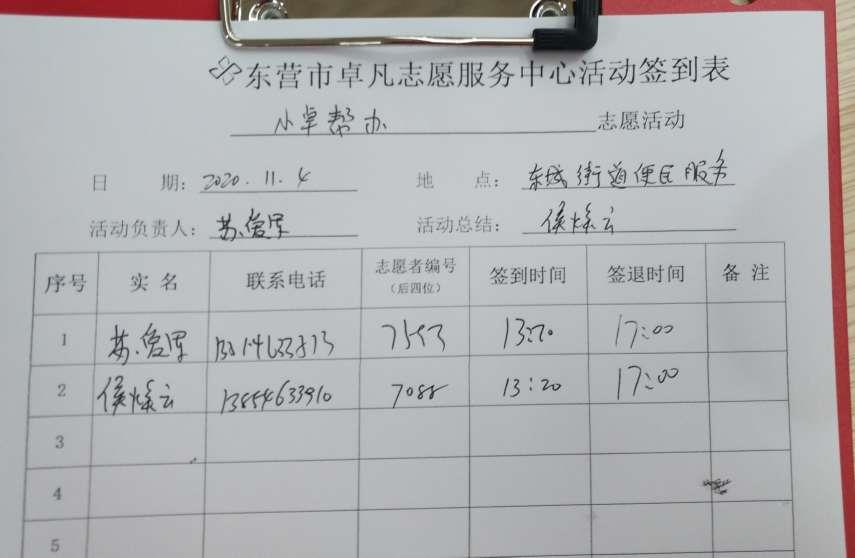 东营市卓凡志愿服务中心活动签到表
小卓帮办 志愿活动
日 期: 2020.11.4 地 点: 东城街道便民服务
活动负责人: 苏爱军 活动总结: 侯焕云
序号 实 名 联系电话 志愿者编号 (后四位) 签到时间 签退时间 备 注
1 苏爱军 17:00
2 侯焕云 13854633910 7088 13:20 17:00
3
4
5